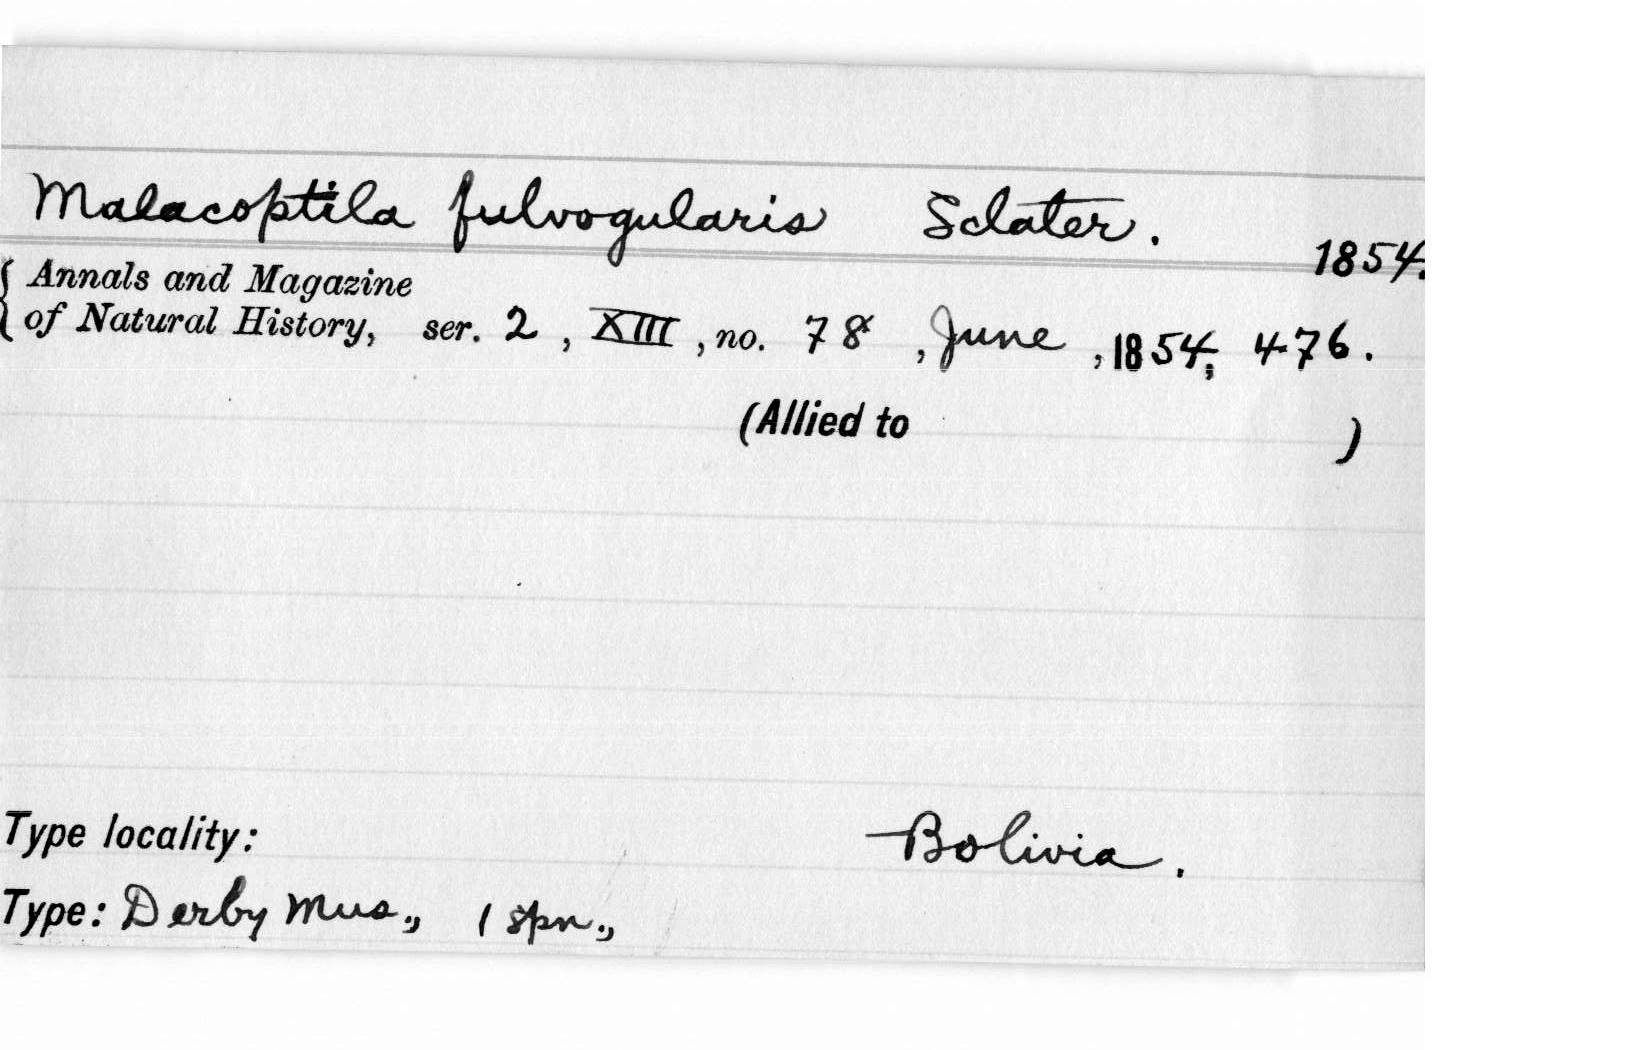 Malacoptila fulvogularis Sclater.
1854.
Annals and Magazine
of Natural History, ser. 2, XIII, no. 78, June, 1854; 476.
(Allied to )
Type locality: Bolivia.
Type: Derby Mus., 1 spn.,